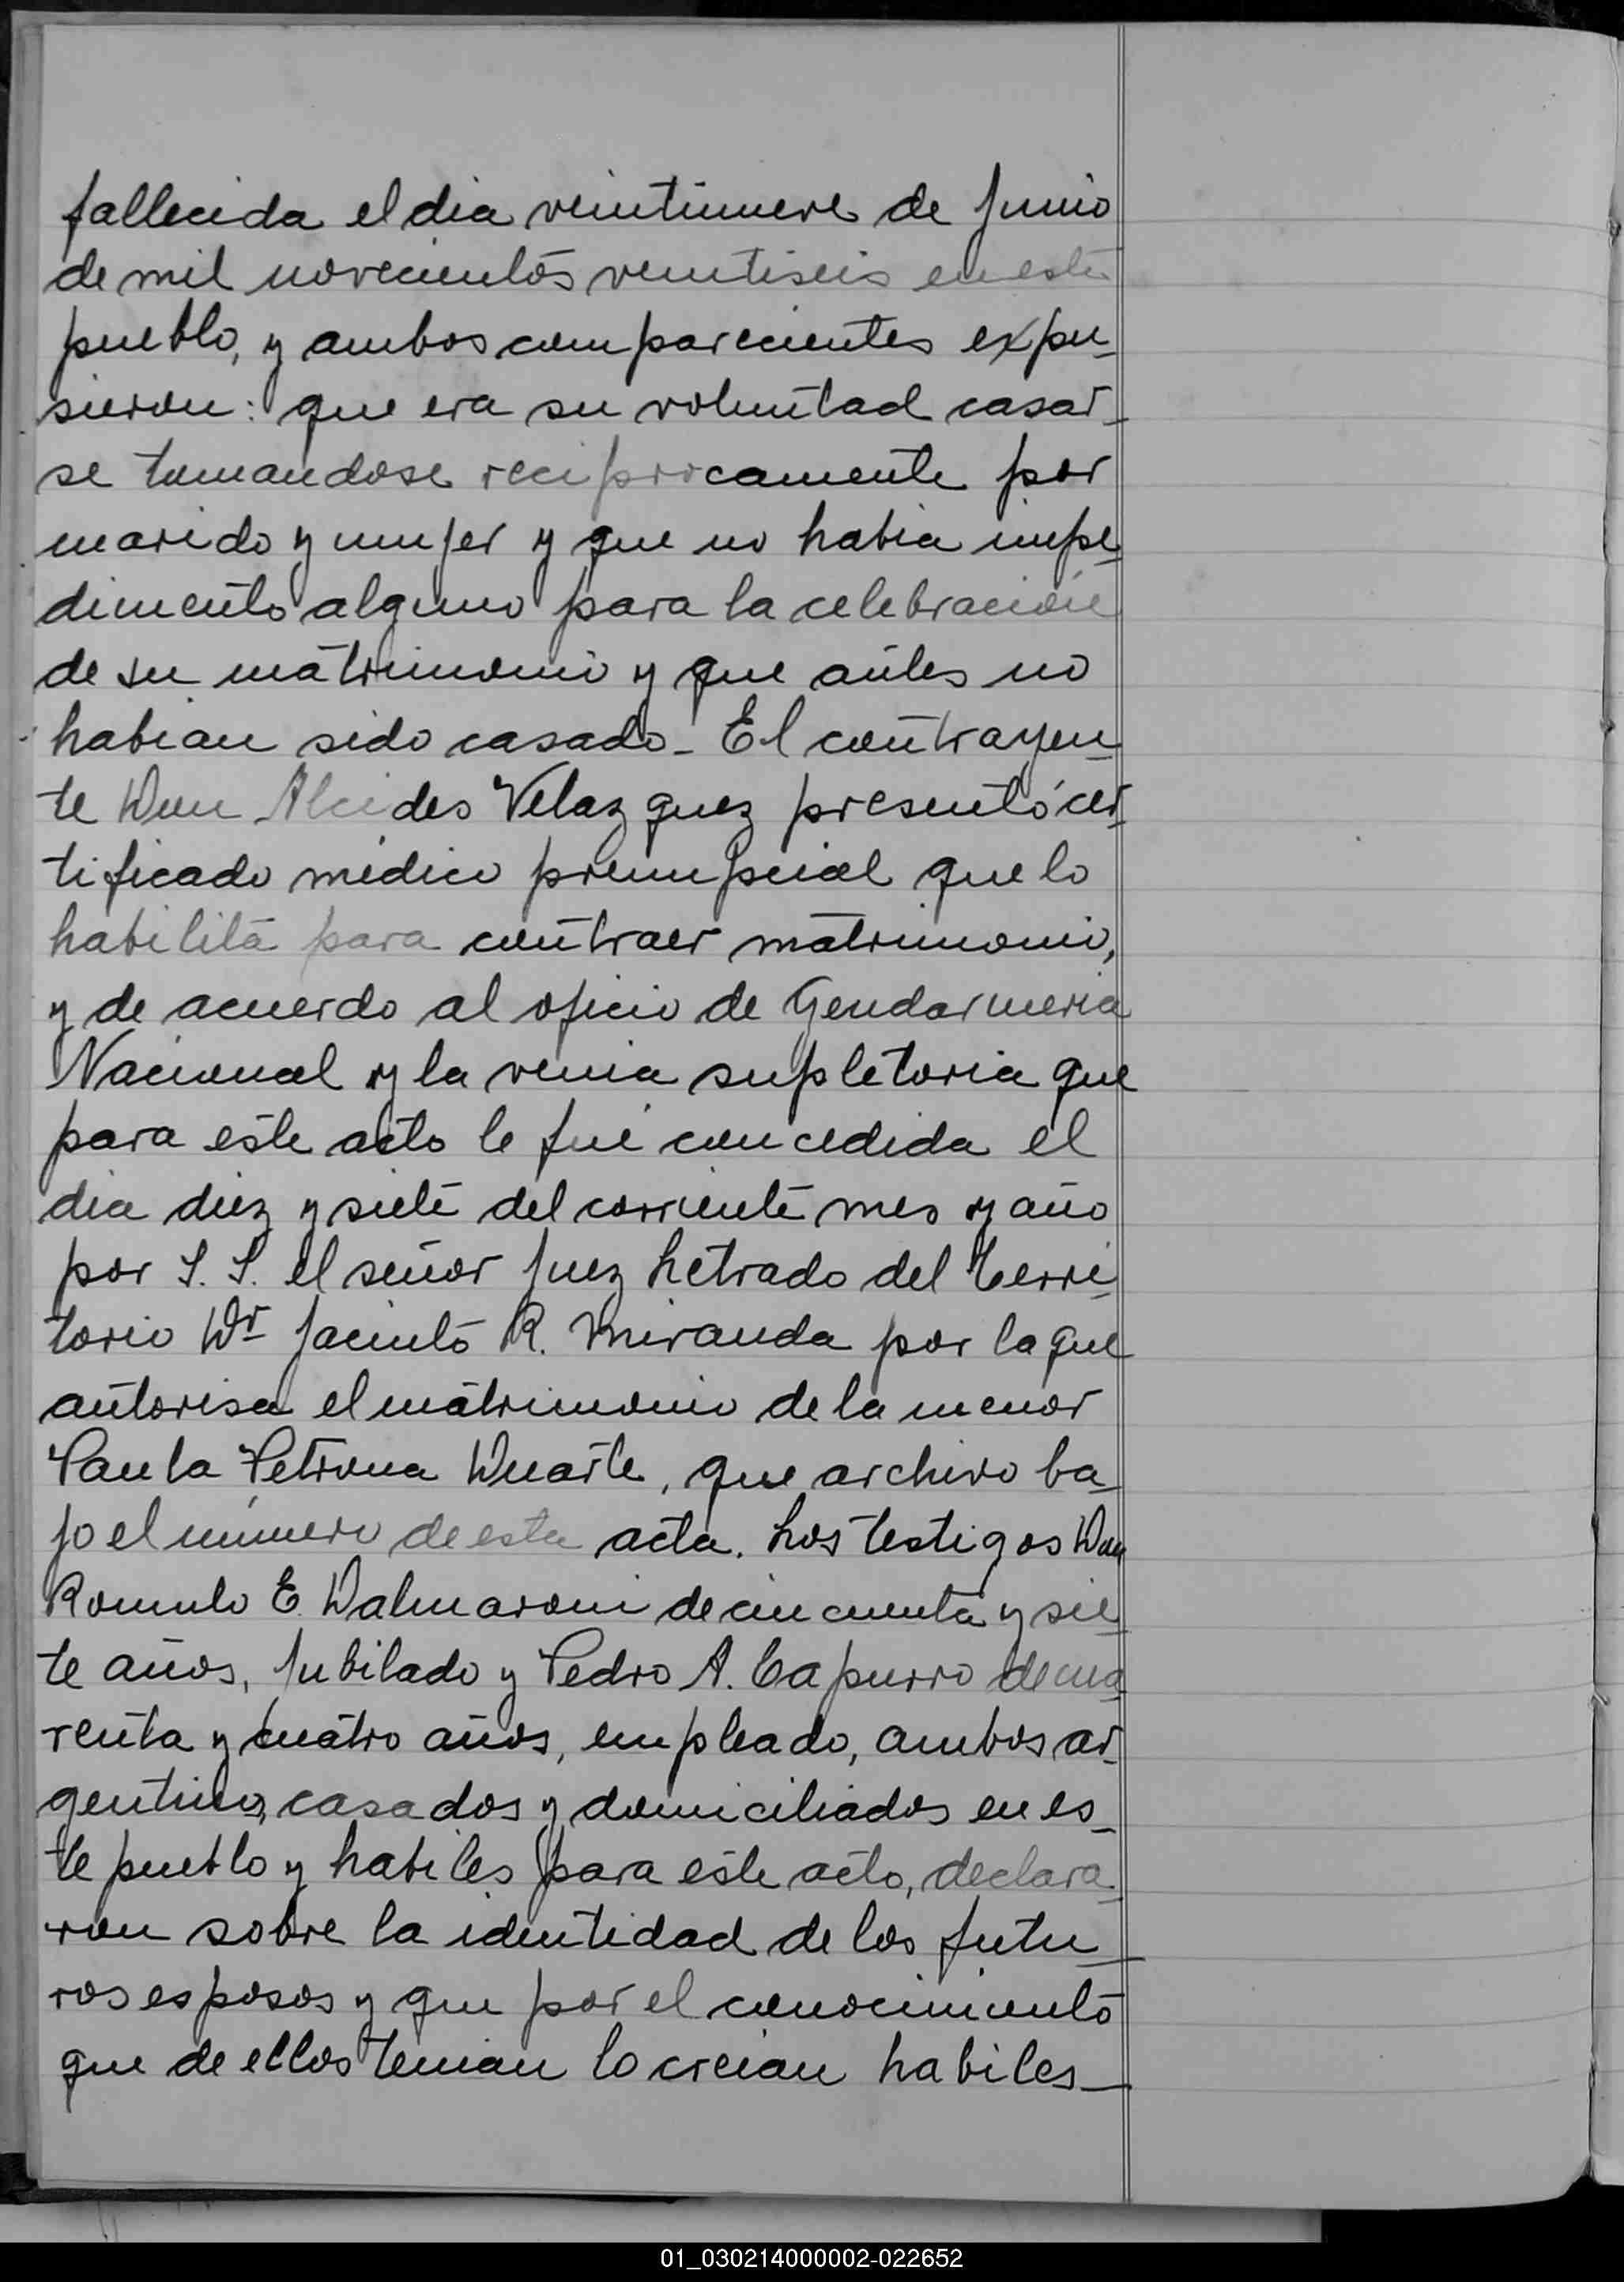 fallecida el dia veintinueve de Junio
de mil novecientos veintiseis en este
pueblo, y ambos comparecientes expu-
sieron: que era su voluntad casar-
se tomandose reciprocamente por
marido y mujer y que no habia impe-
dimento alguno para la celebración
de su matrimonio y que antes no
habian sido casado - El contrayen-
te Don Alcides Velazquez presentó cer-
tificado médico prenupcial que lo
habilita para contraer matrimonio,
y de acuerdo al oficio de Gendarmeria
Nacional y la venia supletoria que
para este acto le fué concedida el
dia diez y siete del corriente mes y año
por S. S. el señor Juez Letrado del Terri-
torio Dr Jacinto R. Miranda por la que
autorisa el matrimonio de la menor
Paula Petrona Duarte, que archivo ba-
jo el número de esta acta. Los testigos Don
Romulo E. Dalmaroni de cincuenta y sie-
te años, Jubilado y Pedro A. Capurro de cua-
renta y cuatro años, empleado, ambos ar-
gentino, casados y domiciliados en es-
te pueblo y habiles para este acto, declara-
ron sobre la identidad de los futu-
ros esposos y que por el conocimiento
que de ellos tenian lo creian habiles-
01_030214000002-022652